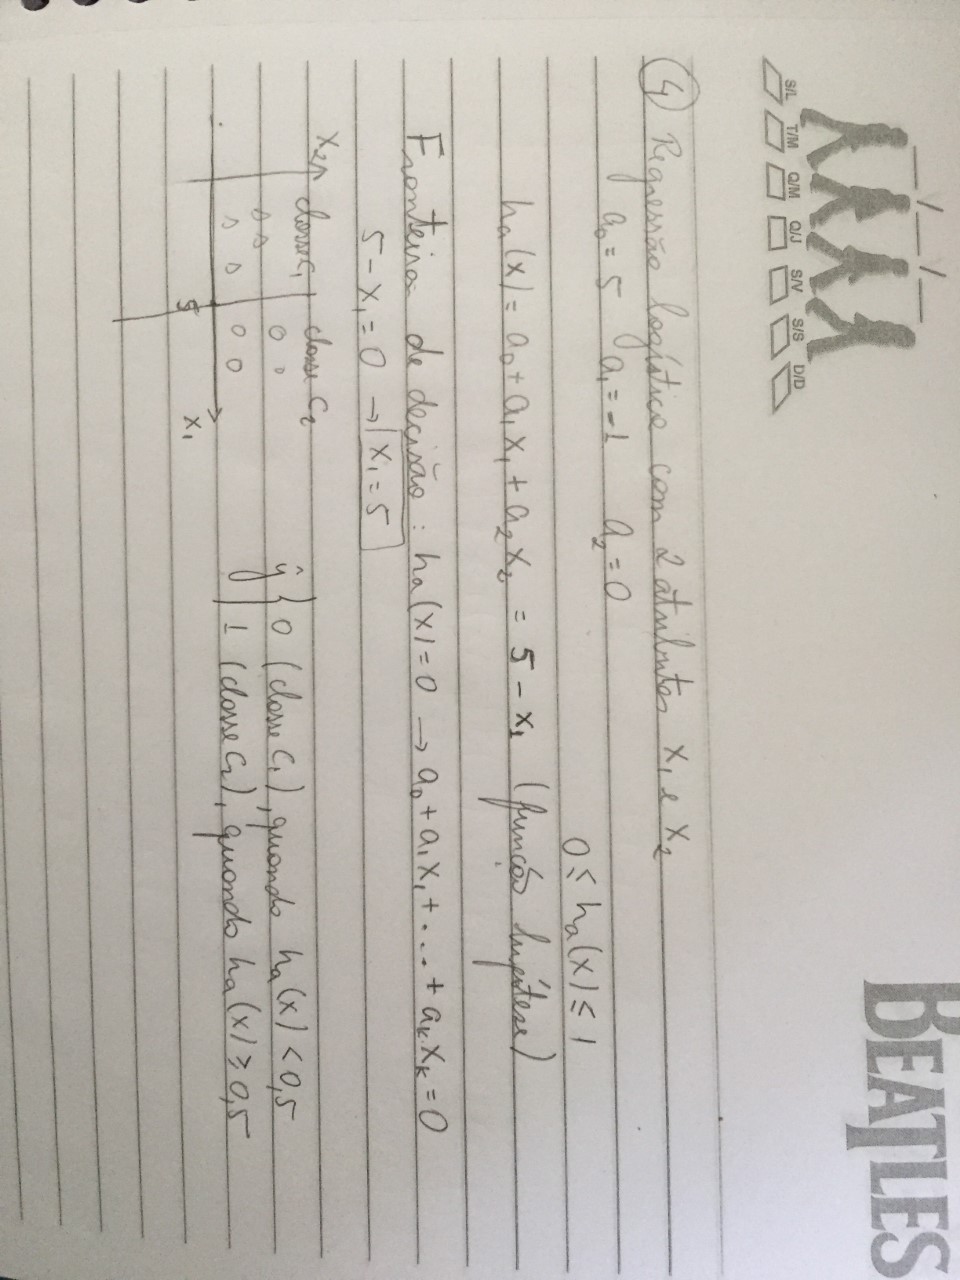 BEATLES
S/L T/M Q/M Q/J S/V S/S D/D
4 Regressão logística com 2 atributos x₁ e x₂
a₀ = 5 a₁ = -1 a₂ = 0
0 ≤ hₐ(x) ≤ 1
hₐ(x) = a₀ + a₁x₁ + a₂x₂ = 5 - x₁ (função hipótese)
Fronteira de decisão: hₐ(x) = 0 → a₀ + a₁x₁ + ... + aₖ.xₖ = 0
5 - x₁ = 0 → x₁ = 5
x₂ classe C₁ classe C₂
ŷ { 0 (classe C₁), quando hₐ(x) < 0,5
1 (classe C₂), quando hₐ(x) ≥ 0,5
5
x₁